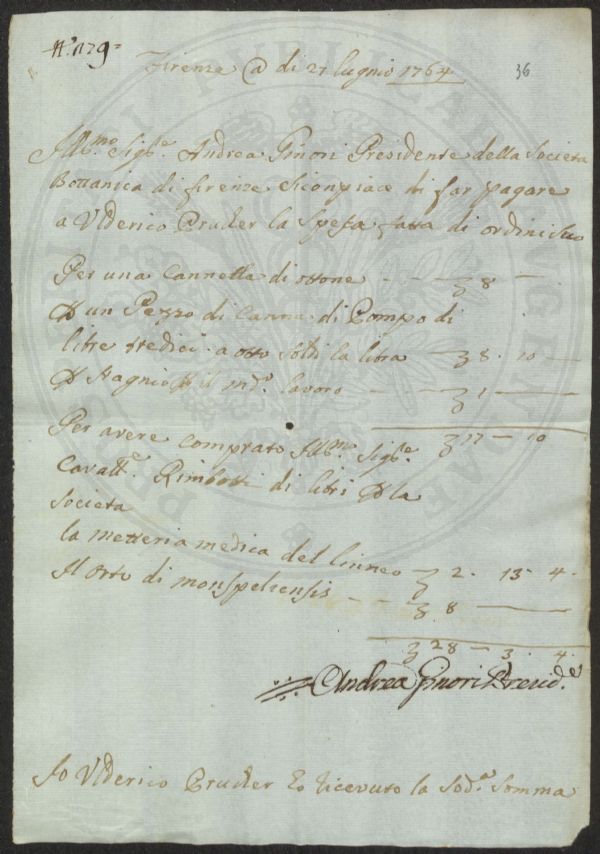 N.° 179=
Firenze @ di 27 luglio 1764
36
Ill.mo Sig.re Andrea Ginori Presidente della Societa
Bottanica di firenze Si conpiace di far pagare
a Vlderico Pruker la Spesa fatta di ordini Suo
Per una Cannella di ottone - - 8 -
un Pezzo di Canna di Pompo di
libre tredici a otto Soldi la libra 8. 10 -
Stagnio il md.° lavoro - 1 -
17 - 10
Per avere comprato Ill.mo Sig.re
Cavall.e Rimbotti di libri la
Societa
la metteria medica del linneo 2. 13. 4.
Il Orto di monspeliensis - - 8 -
28 - 3. 4.
Andrea Ginori Presid.e
Io Vlderico Pruker ho ricevuto la Sod.a Somma